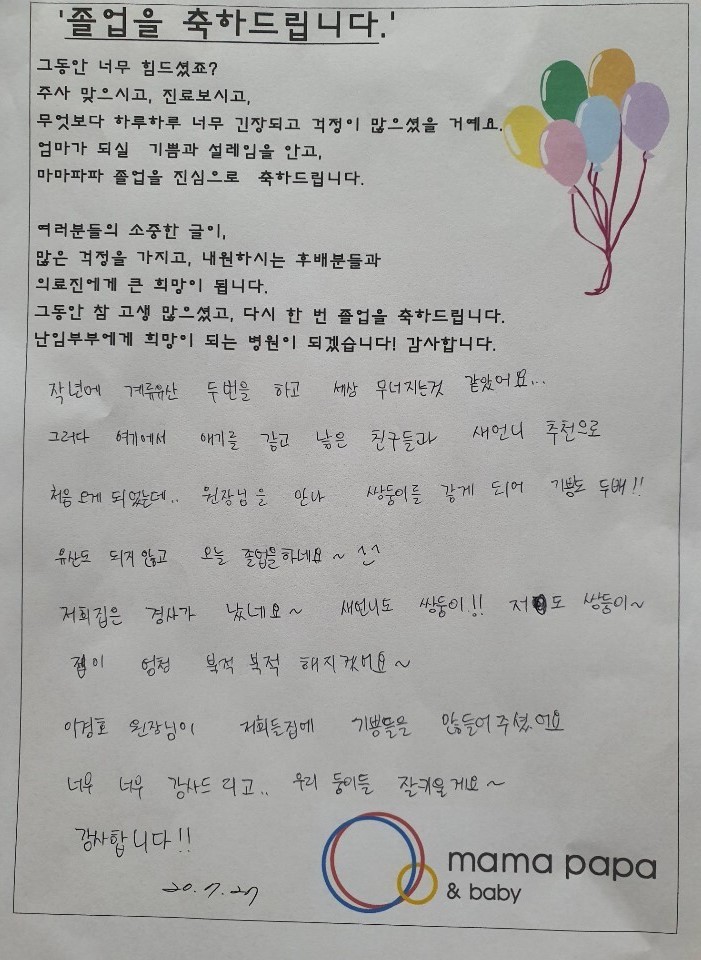 '졸업을 축하드립니다.'
그동안 너무 힘드셨죠?
주사 맞으시고, 진료보시고,
무엇보다 하루하루 너무 긴장되고 걱정이 많으셨을 거예요.
엄마가 되실 기쁨과 설레임을 안고,
마마파파 졸업을 진심으로 축하드립니다.
여러분들의 소중한 글이,
많은 걱정을 가지고, 내원하시는 후배분들과
의료진에게 큰 희망이 됩니다.
그동안 참 고생 많으셨고, 다시 한 번 졸업을 축하드립니다.
난임부부에게 희망이 되는 병원이 되겠습니다! 감사합니다.
작년에 계류유산 두번을 하고 세상 무너지는것 같았어요...
그러다 여기에서 애기를 갖고 낳은 친구들과 새언니 추천으로
처음 오게 되었는데.. 원장님을 만나 쌍둥이를 갖게 되어 기쁨도 두배!!
유산도 되지 않고 오늘 졸업을하네요~ ^^
저희집은 경사가 났네요~ 새언니도 쌍둥이!! 저도 쌍둥이~
집이 엄청 북적 북적 해지겠어요~
이경호 원장님이 저희들집에 기쁨들을 많들어주셨어요
너무 너무 감사드리고.. 우리 둥이들 잘키울게요~
감사합니다!!
20.7.27
mama papa
& baby